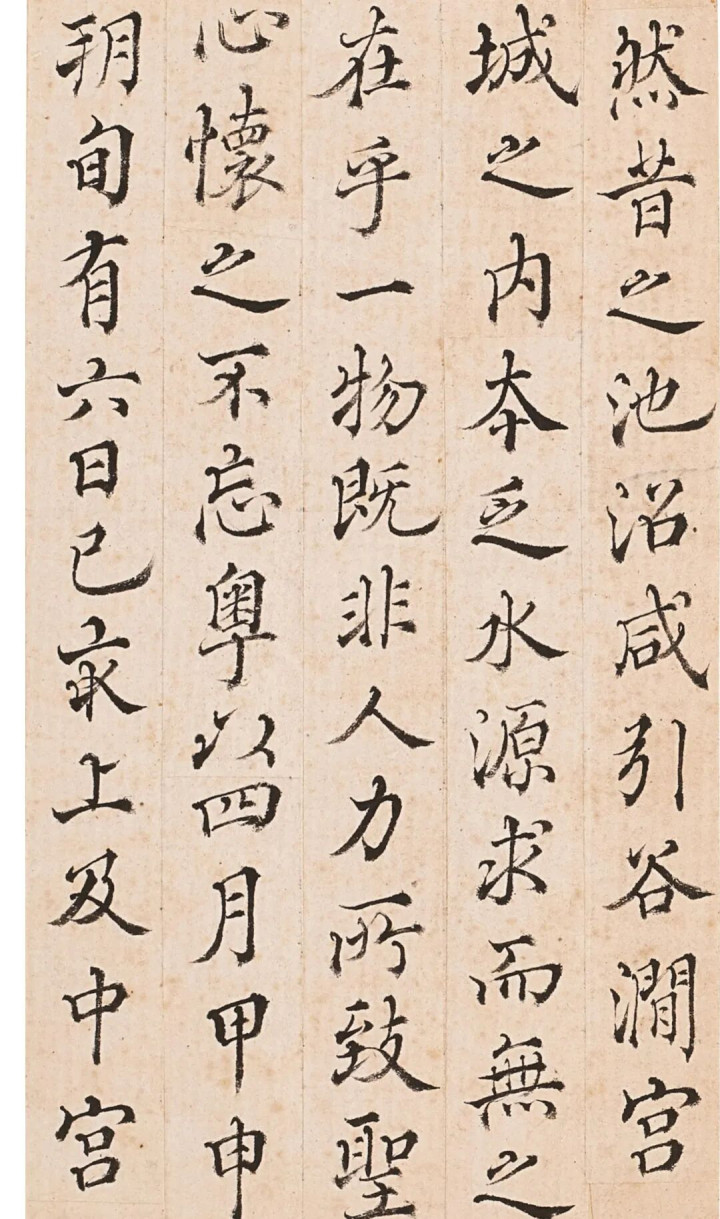 然昔之池沼咸引谷澗宮
城之内本乏水源求而無之
在乎一物既非人力所致聖
心懷之不忘粤以四月甲申
朔旬有六日己亥上及中宮